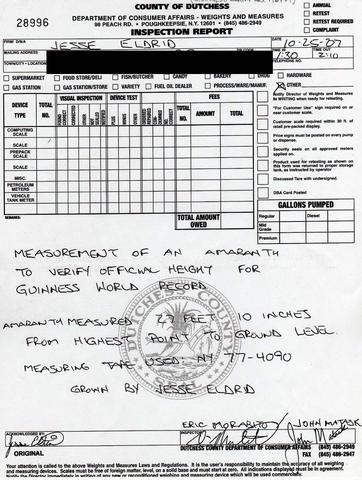 COUNTY OF DUTCHESS
28996
DEPARTMENT OF CONSUMER AFFAIRS - WEIGHTS AND MEASURES
98 PEACH RD. • POUGHKEEPSIE, N.Y. 12601 • (845) 486-2949
INSPECTION REPORT
ANNUAL
RETEST
RETEST REQUIRED
COMPLAINT
FIRM D/B/A JESSE ELDRID
DATE 10-25-07
MAILING ADDRESS
TIME IN 1:30 TIME OUT 2:10
TOWN/CITY - LOCATION
TELEPHONE NO.
SUPERMARKET FOOD STORE/DELI FISH/BUTCHER CANDY BAKERY DRUG HARDWARE
GAS STATION GAS STATION/STORE VARIETY FUEL OIL DEALER PROCESS/WARE/MANUF. OTHER
DEVICE TYPE TOTAL NO. VISUAL INSPECTION DEVICE TEST FEES
TOTAL NO. AMOUNT TOTAL
COMPUTING SCALE
SCALE
PREPACK SCALE
SCALE
MISC.
PETROLEUM METERS
VEHICLE TANK METER
Notify Director of Weights and Measures IN WRITING when ready for retesting.
"For Customer Use" sign required on or near scale.
Customer scale required within 30 ft. of retail pre-packed display.
Price signs must be posted on every pump or dispenser.
Security seals on all approved meters applied.
Product used for retesting as shown on this form was returned to proper storage tank, as instructed by operator
Discussed Tare with undersigned.
DBA Card Posted
REMARKS:
TOTAL AMOUNT OWED
GALLONS PUMPED
Regular Diesel
Mid Grade
Premium
MEASUREMENT OF AN AMARANTH
TO VERIFY OFFICIAL HEIGHT FOR
GUINNESS WORLD RECORD
AMARANTH MEASURED 27 FEET 10 INCHES
FROM HIGHEST POINT TO GROUND LEVEL.
MEASURING TAPE USED: NY 77-4090
GROWN BY JESSE ELDRID
DUTCHESS COUNTY
ERIC MORABITO / JOHN MATUSK
ACKNOWLEDGED BY
INSPECTOR
ORIGINAL
DUTCHESS COUNTY DEPARTMENT OF CONSUMER AFFAIRS (845) 486-2949
FAX (845) 486-2947
Your attention is called to the above Weights and Measures Laws and Regulations. It is the user's responsibility to maintain the accuracy of all weighing
and measuring devices. Scales must be free of foreign matter, level, on a solid base and must start at zero. All indications displayed must be in agreement.
Notify the Director immediately in writing of any new or reconditioned weighing and measuring device which will be used commercially.